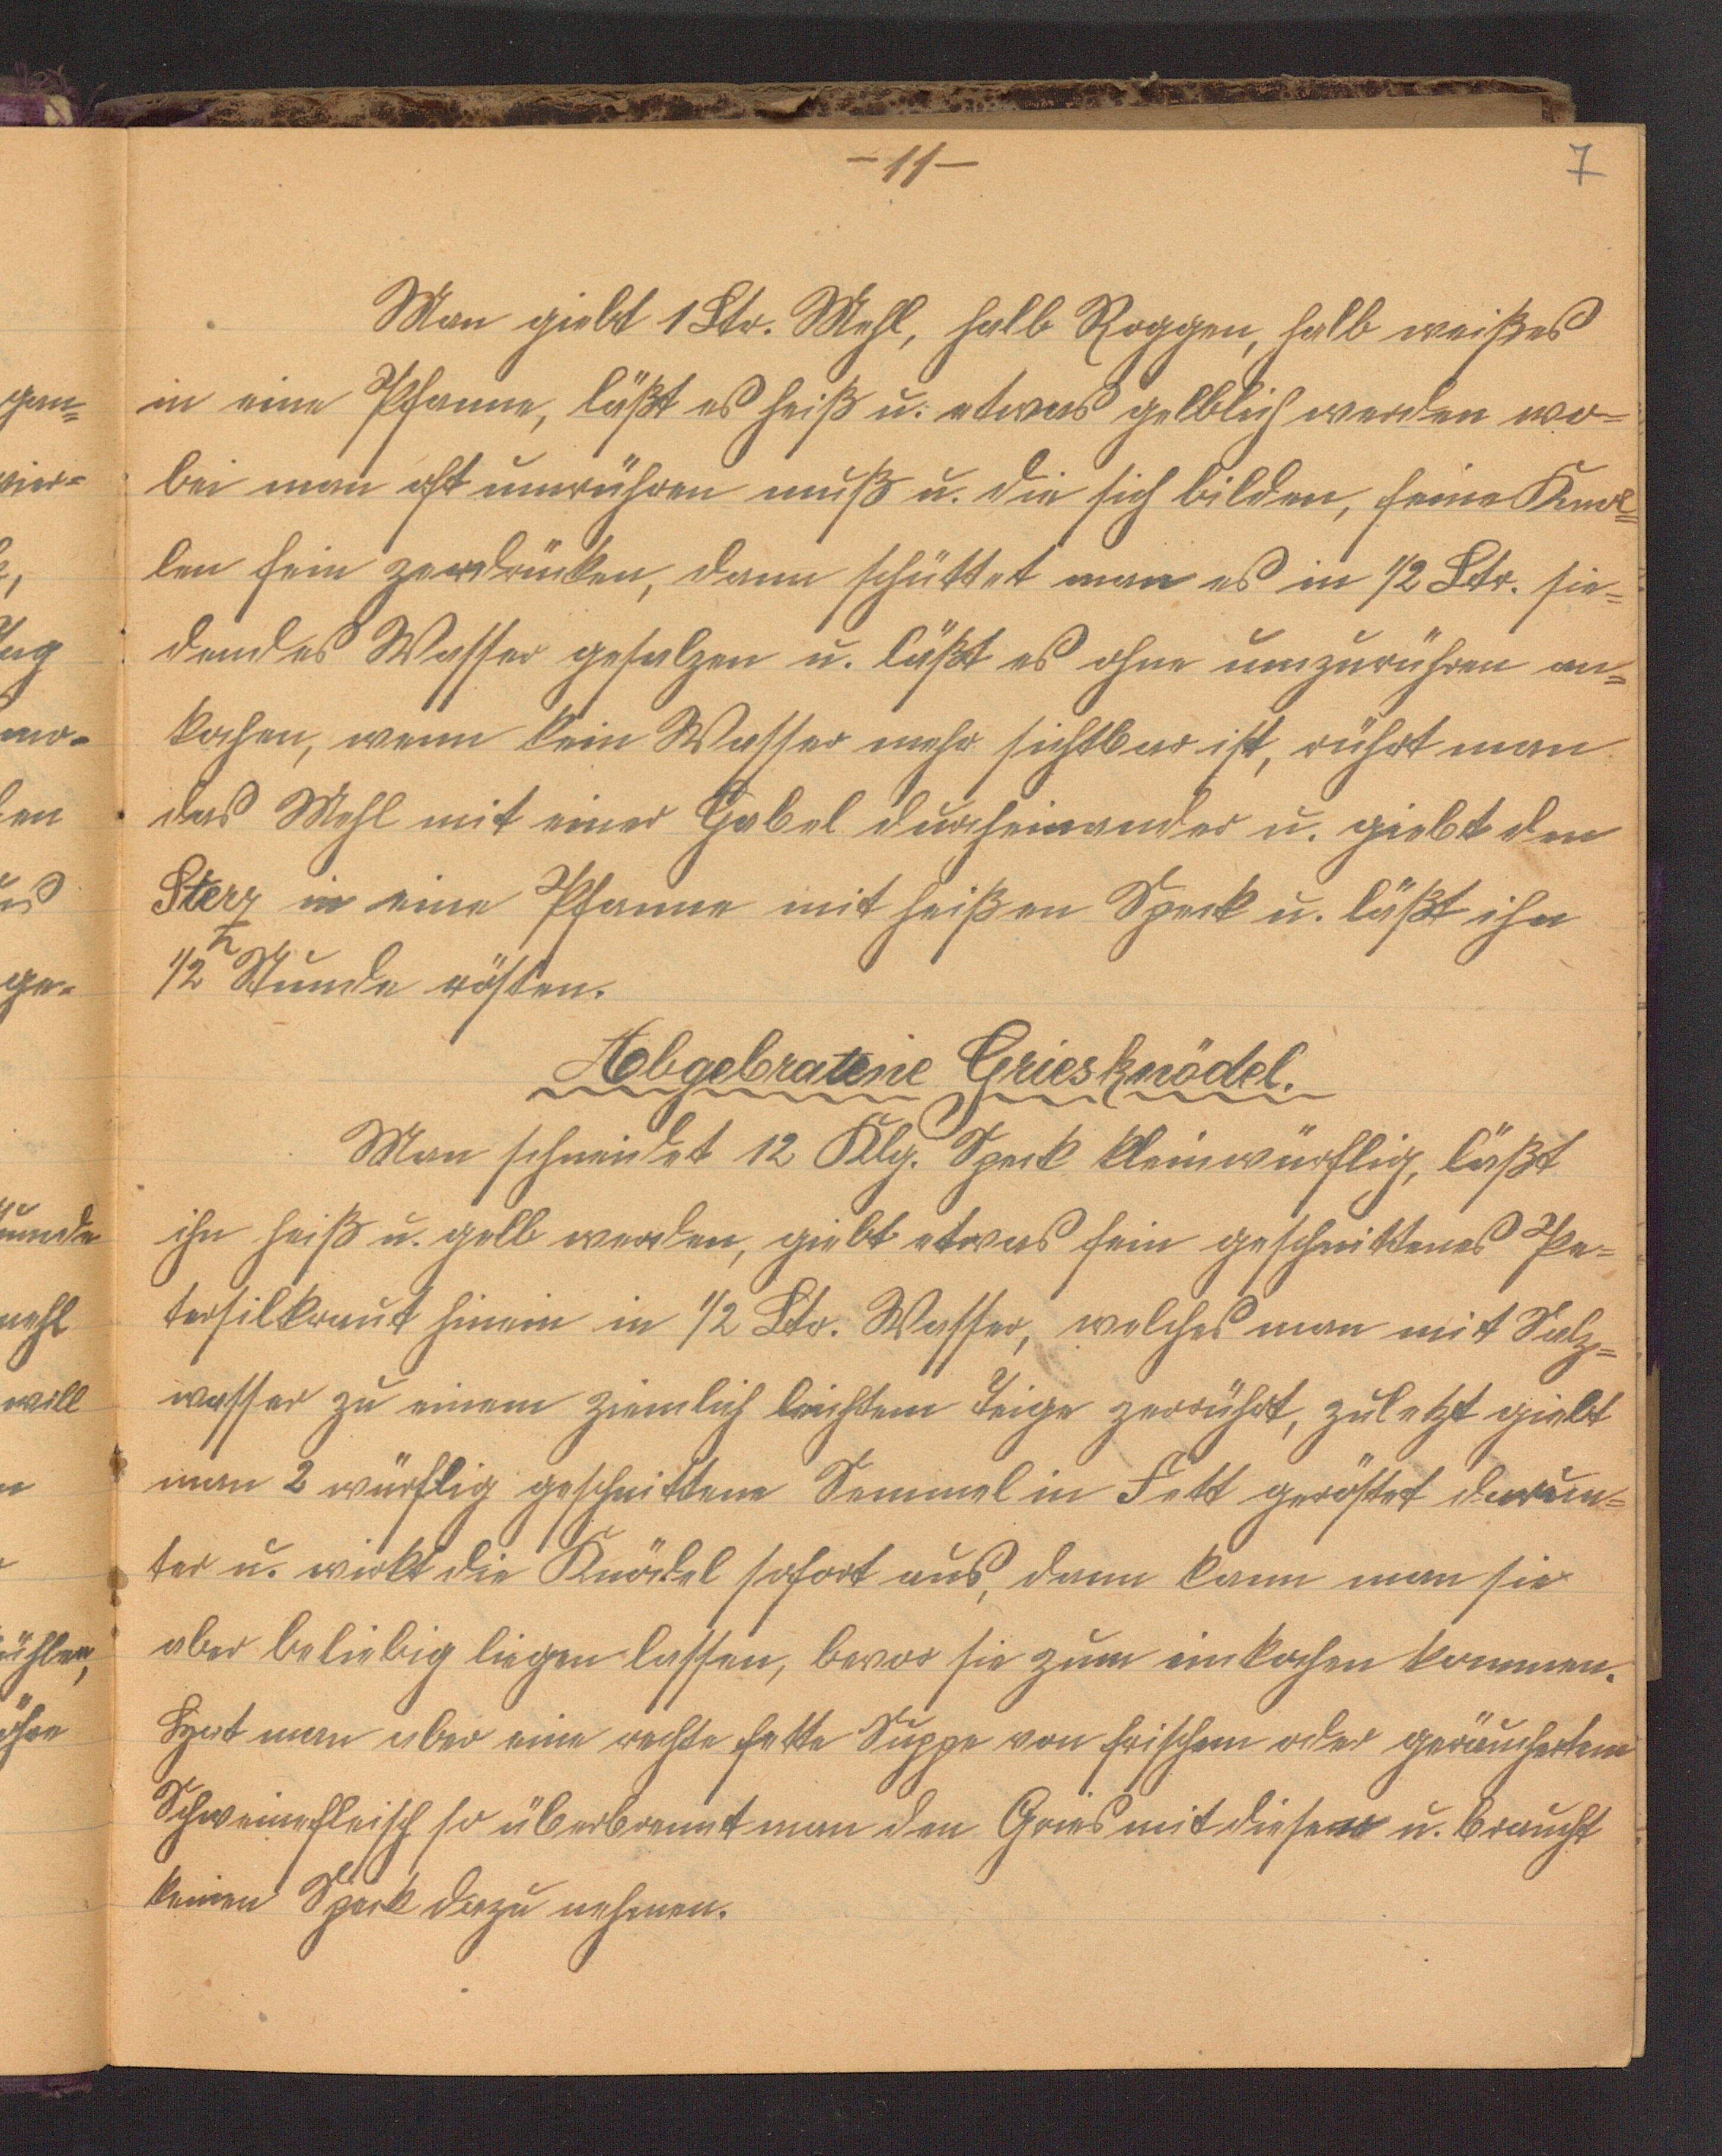 -11-
7
Man giebt 1 Ltr. Mehl, halb Roggen, halb weißes
in eine Pfanne, läßt es heiß u. etwas gelblich werden wo-
bei man oft umrühren muß u. die sich bilden, feine Knol=
len fein zerdrücken, dann schüttet man es in 1/2 Ltr. sie=
dendes Wasser gesalzen u. läßt es ohne umzurühren an=
kochen, wenn kein Wasser mehr sichtbar ist, rührt man
das Mehl mit einer Gabel durcheinander u. giebt den
Sterz in eine Pfanne mit heißen Speck u. läßt ihn
1/2 Stunde rösten.
Abgebratene Griesknödel.
Man schneidet 12 Klg. Speck kleinwürflig, läßt
ihn heiß u. gelb werden, giebt etwas fein geschnittenes Pe=
tersilkraut hinein in 1/2 Ltr. Wasser, welches man mit Salz=
wasser zu einem ziemlich leichtem Teige zerrührt, zuletzt giebt
man 2 würflig geschnittene Semmel in Fett geröstet darun=
ter u. wirkt die Knödel sofort aus, dann kann man sie
aber beliebig liegen lassen, bevor sie zum einkochen kommen.
Hat man aber eine rechte fette Suppe von frischem oder geräuchertem
Schweinefleisch so überbrennt man den Gries mit dieser u. braucht
keinen Speck dazu nehmen.